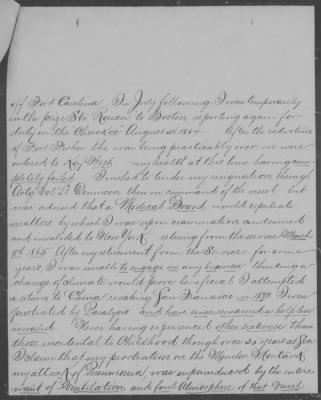 off Fort Carolina. In July following I was temporarily
in the prize Str. Rouen to Boston reporting again for
duty in the Cherokee August 1st 1864. After the reduction
of Fort Fisher the war being practically over we were
ordered to Key West my health at this time having com-
pletely failed. I wished to tender my resignation through
Actg Vol Lt Dennison then in command of the vessel but
was advised that a Medical Board would expedite
matters by which I was upon examination condemned
and invalided to New York retiring from the service March
9th 1865 After my retirement from the Service for some
years I was unable to engage in any business thinking a
change of climate would prove beneficial I attempted
a return to China reaching San Francisco in 1870 I was
prostrated by Paralysis and have since remained a helpless
invalid. Never having experienced other sickness than
those incidental to Childhood though over 30 years at Sea
I claim that my prostration on the Monitor Montauk
my attack of Pneumonia, was superinduced by the entire
want of Ventilation and foul Atmosphere of that Vessel